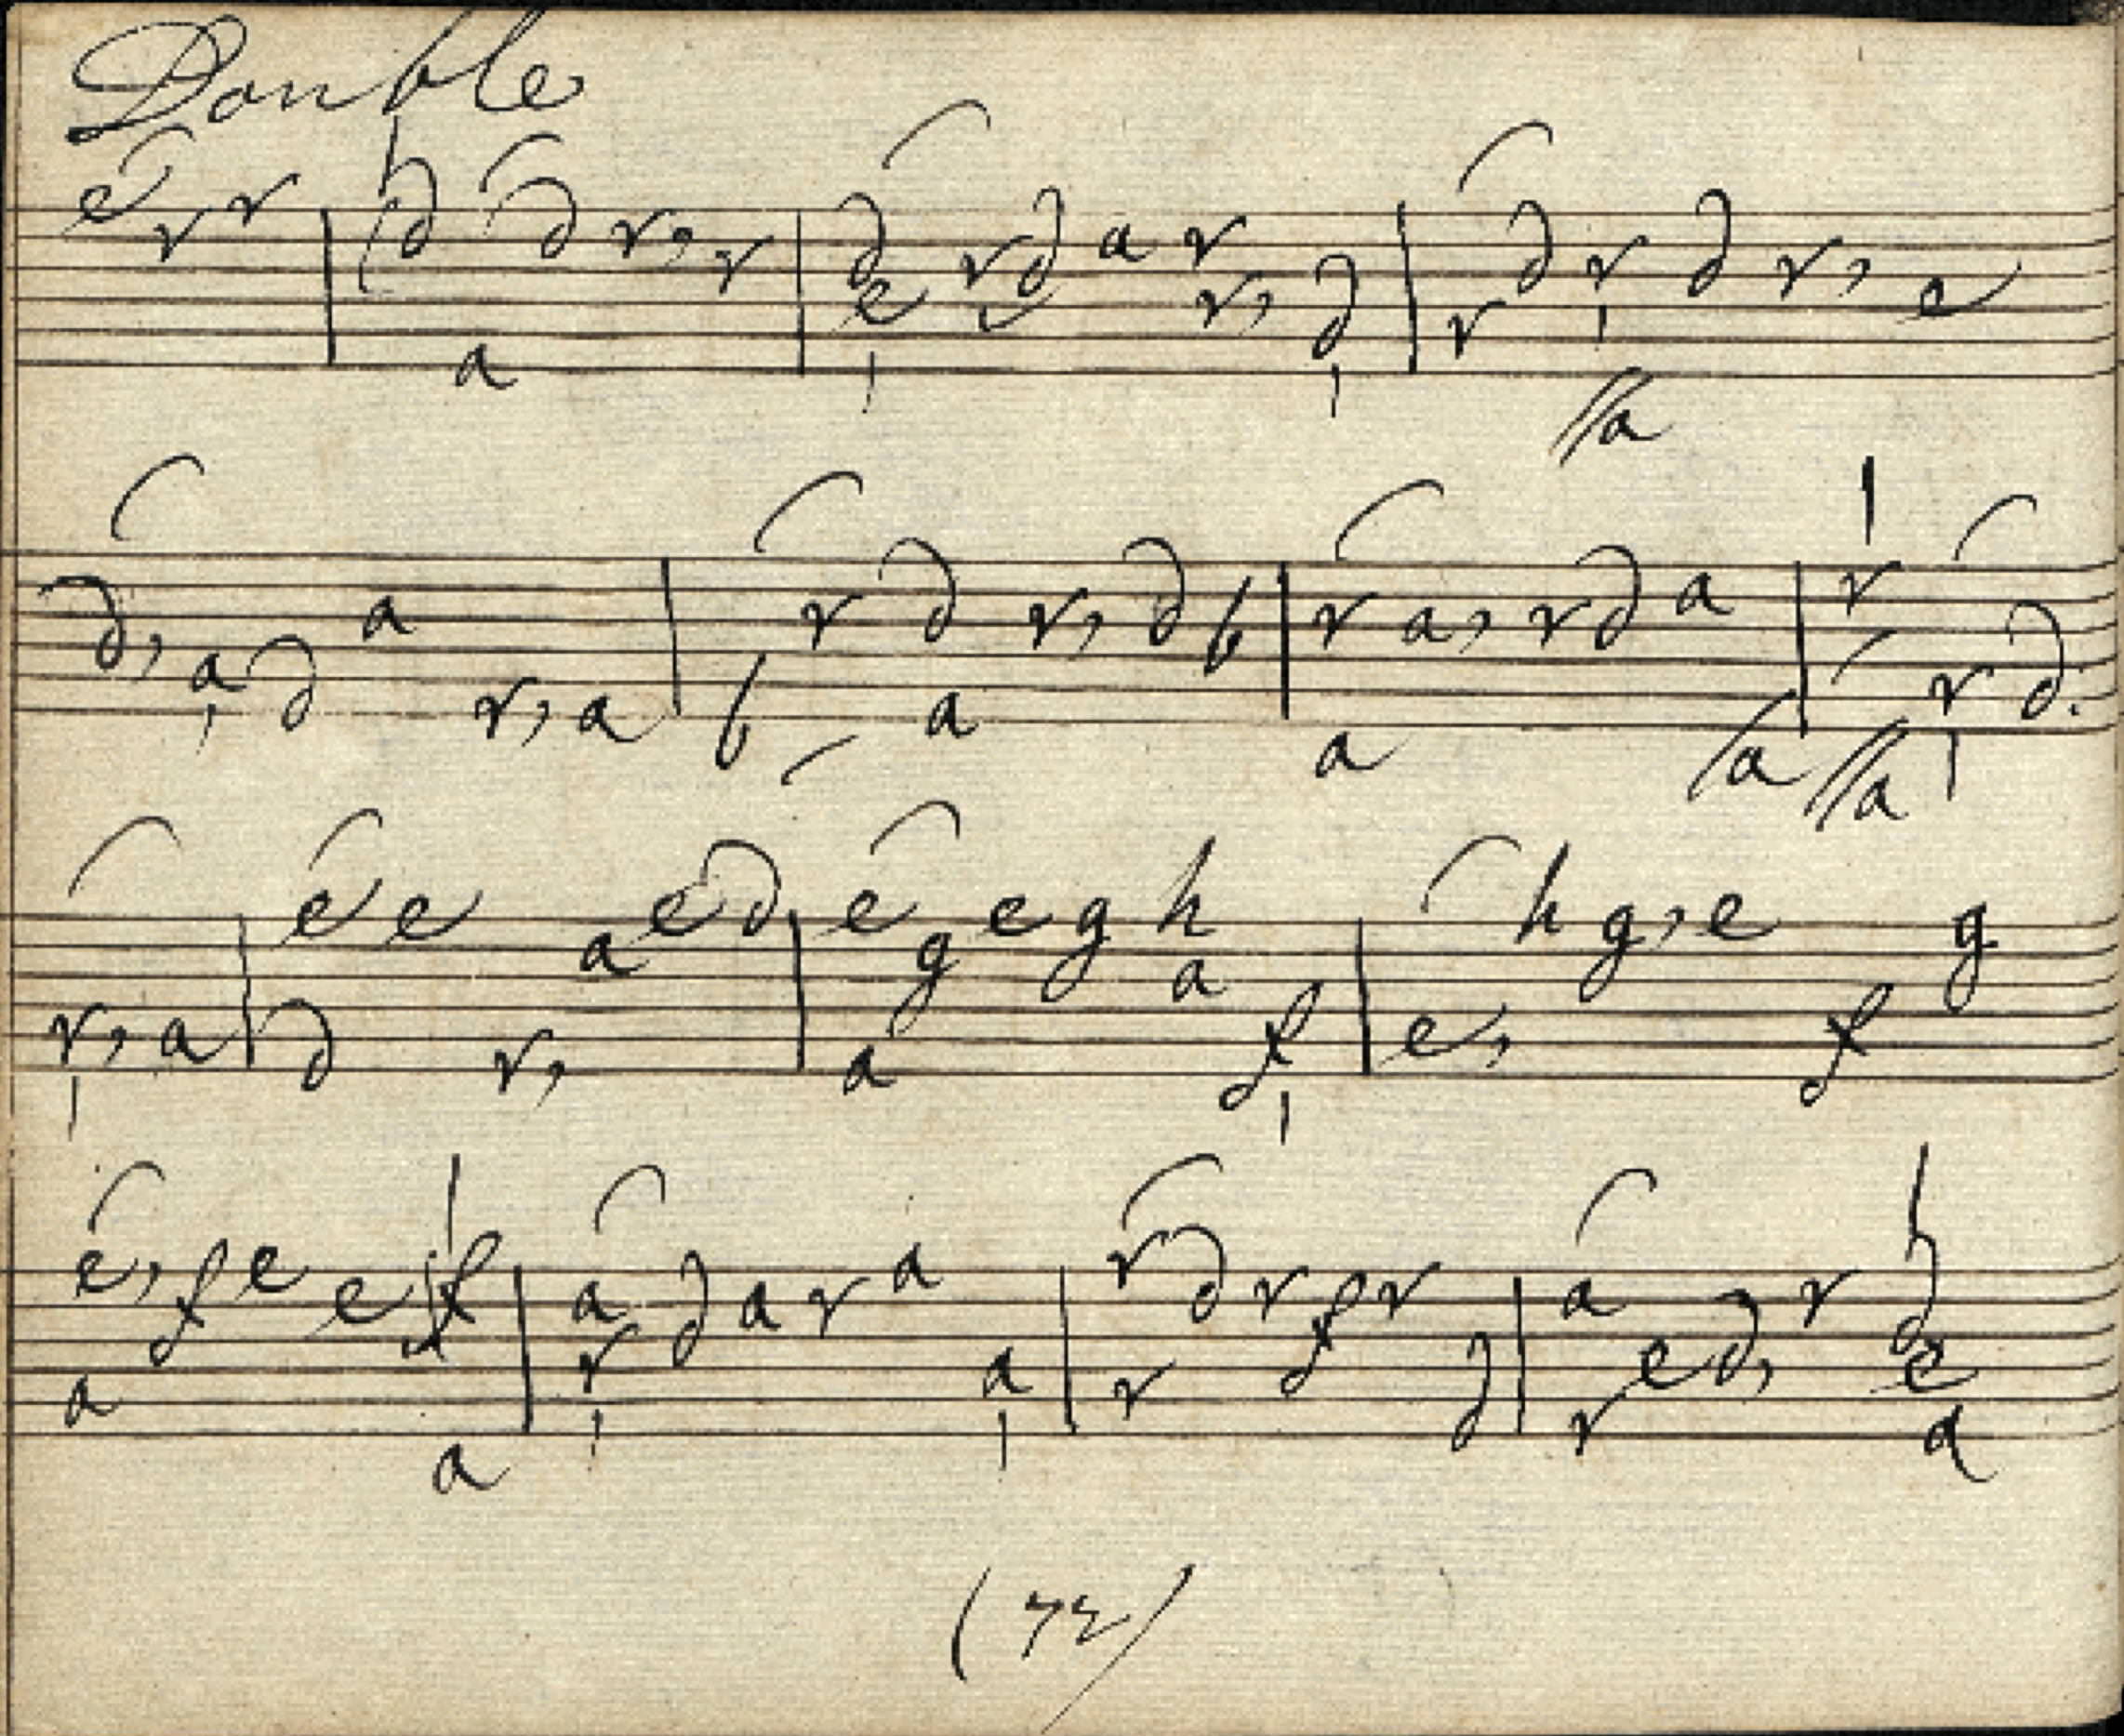 Double
e r r d d r, r d r d a r d r d r, e
a e r,
r
//a
d, a d a r d r, d b r a, r d a r
r, a b a a /a //a r d.
e e a e d e g e g h h g, e g
r, a d r, a a f e, f
e, f e e f a d a r a r d r f r a e d, r d
a a r a r d r e a
(72)